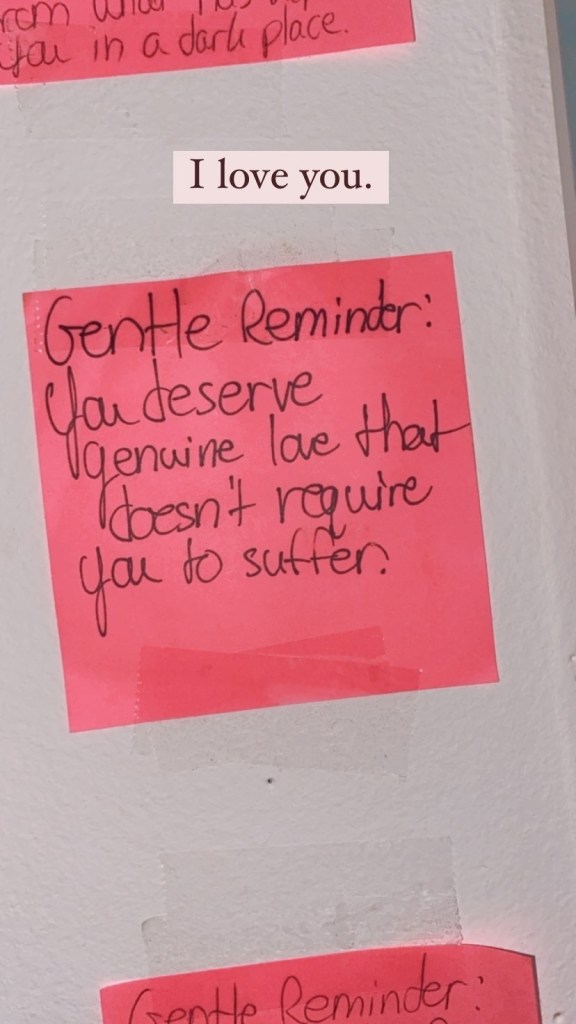 you in a dark place.
I love you.
Gentle Reminder:
you deserve
genuine love that
doesn't require
you to suffer.
Gentle Reminder: